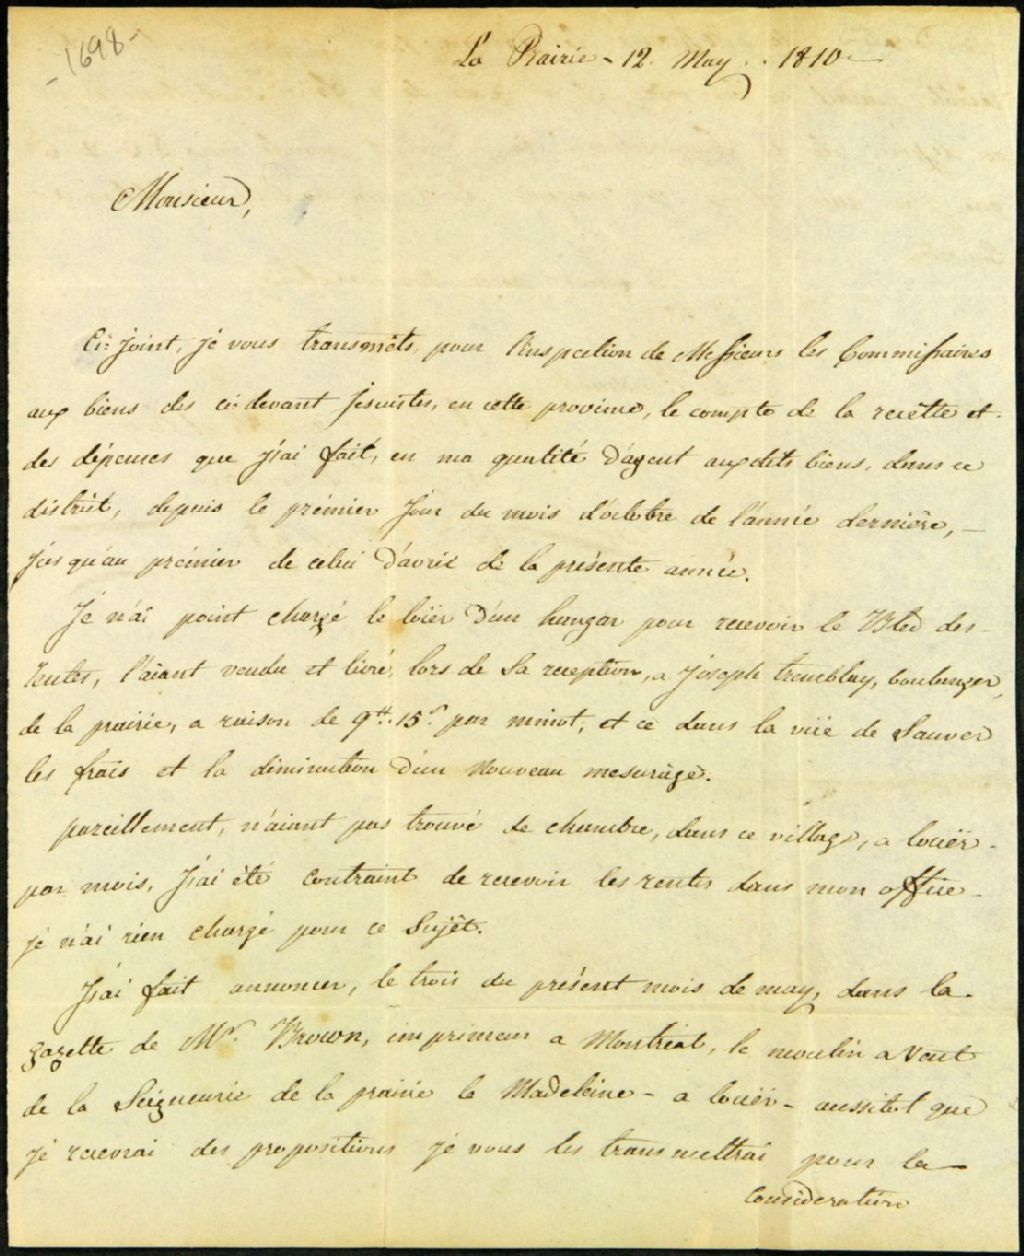 -1698-
La Prairie - 12 May . . 1810 -
Monsieur,
Ci: Joint, Je vous transmèts, pour l'inspection de Messieurs les Commissaires
aux biens des ci-devant Jesuites, en cette province, le compte de la recètte et
des dépenses que J'ai fait, en ma qualité d'agent auxdits biens, dans ce
district, depuis le prémier Jour du mois d'octobre de l'année dernière, -
Jusqu'au prémier de celui d'avril de la présente année.
Je n'ai point chargé le loièr d'un hangar pour recevoir le Bled des
rentes, l'aiant vendu et livré, lors de sa reception, a Joseph tremblay, boulanger,
de la prairie, a raison de 9tt. 15s par minot, et ce dans la vüe de Sauver
les frais et la diminution d'un Nouveau mesurâge.
pareillement, n'aiant pas trouvé de chambre, dans ce village, a loüer -
par mois, J'ai été Contraint de recevoir les rentes dans mon office -
je n'ai rien chargé pour ce Sujêt.
J'ai fait annoncer, le trois du présent mois de may, dans la
gazette de Mr. Brown, imprimeur a Montréal, le moulin a Vent
de la Seigneurie de la prairie la Madeleine - a loüer - aussitot que
je recevrai des propositions je vous les transmettrai pour la
Considération